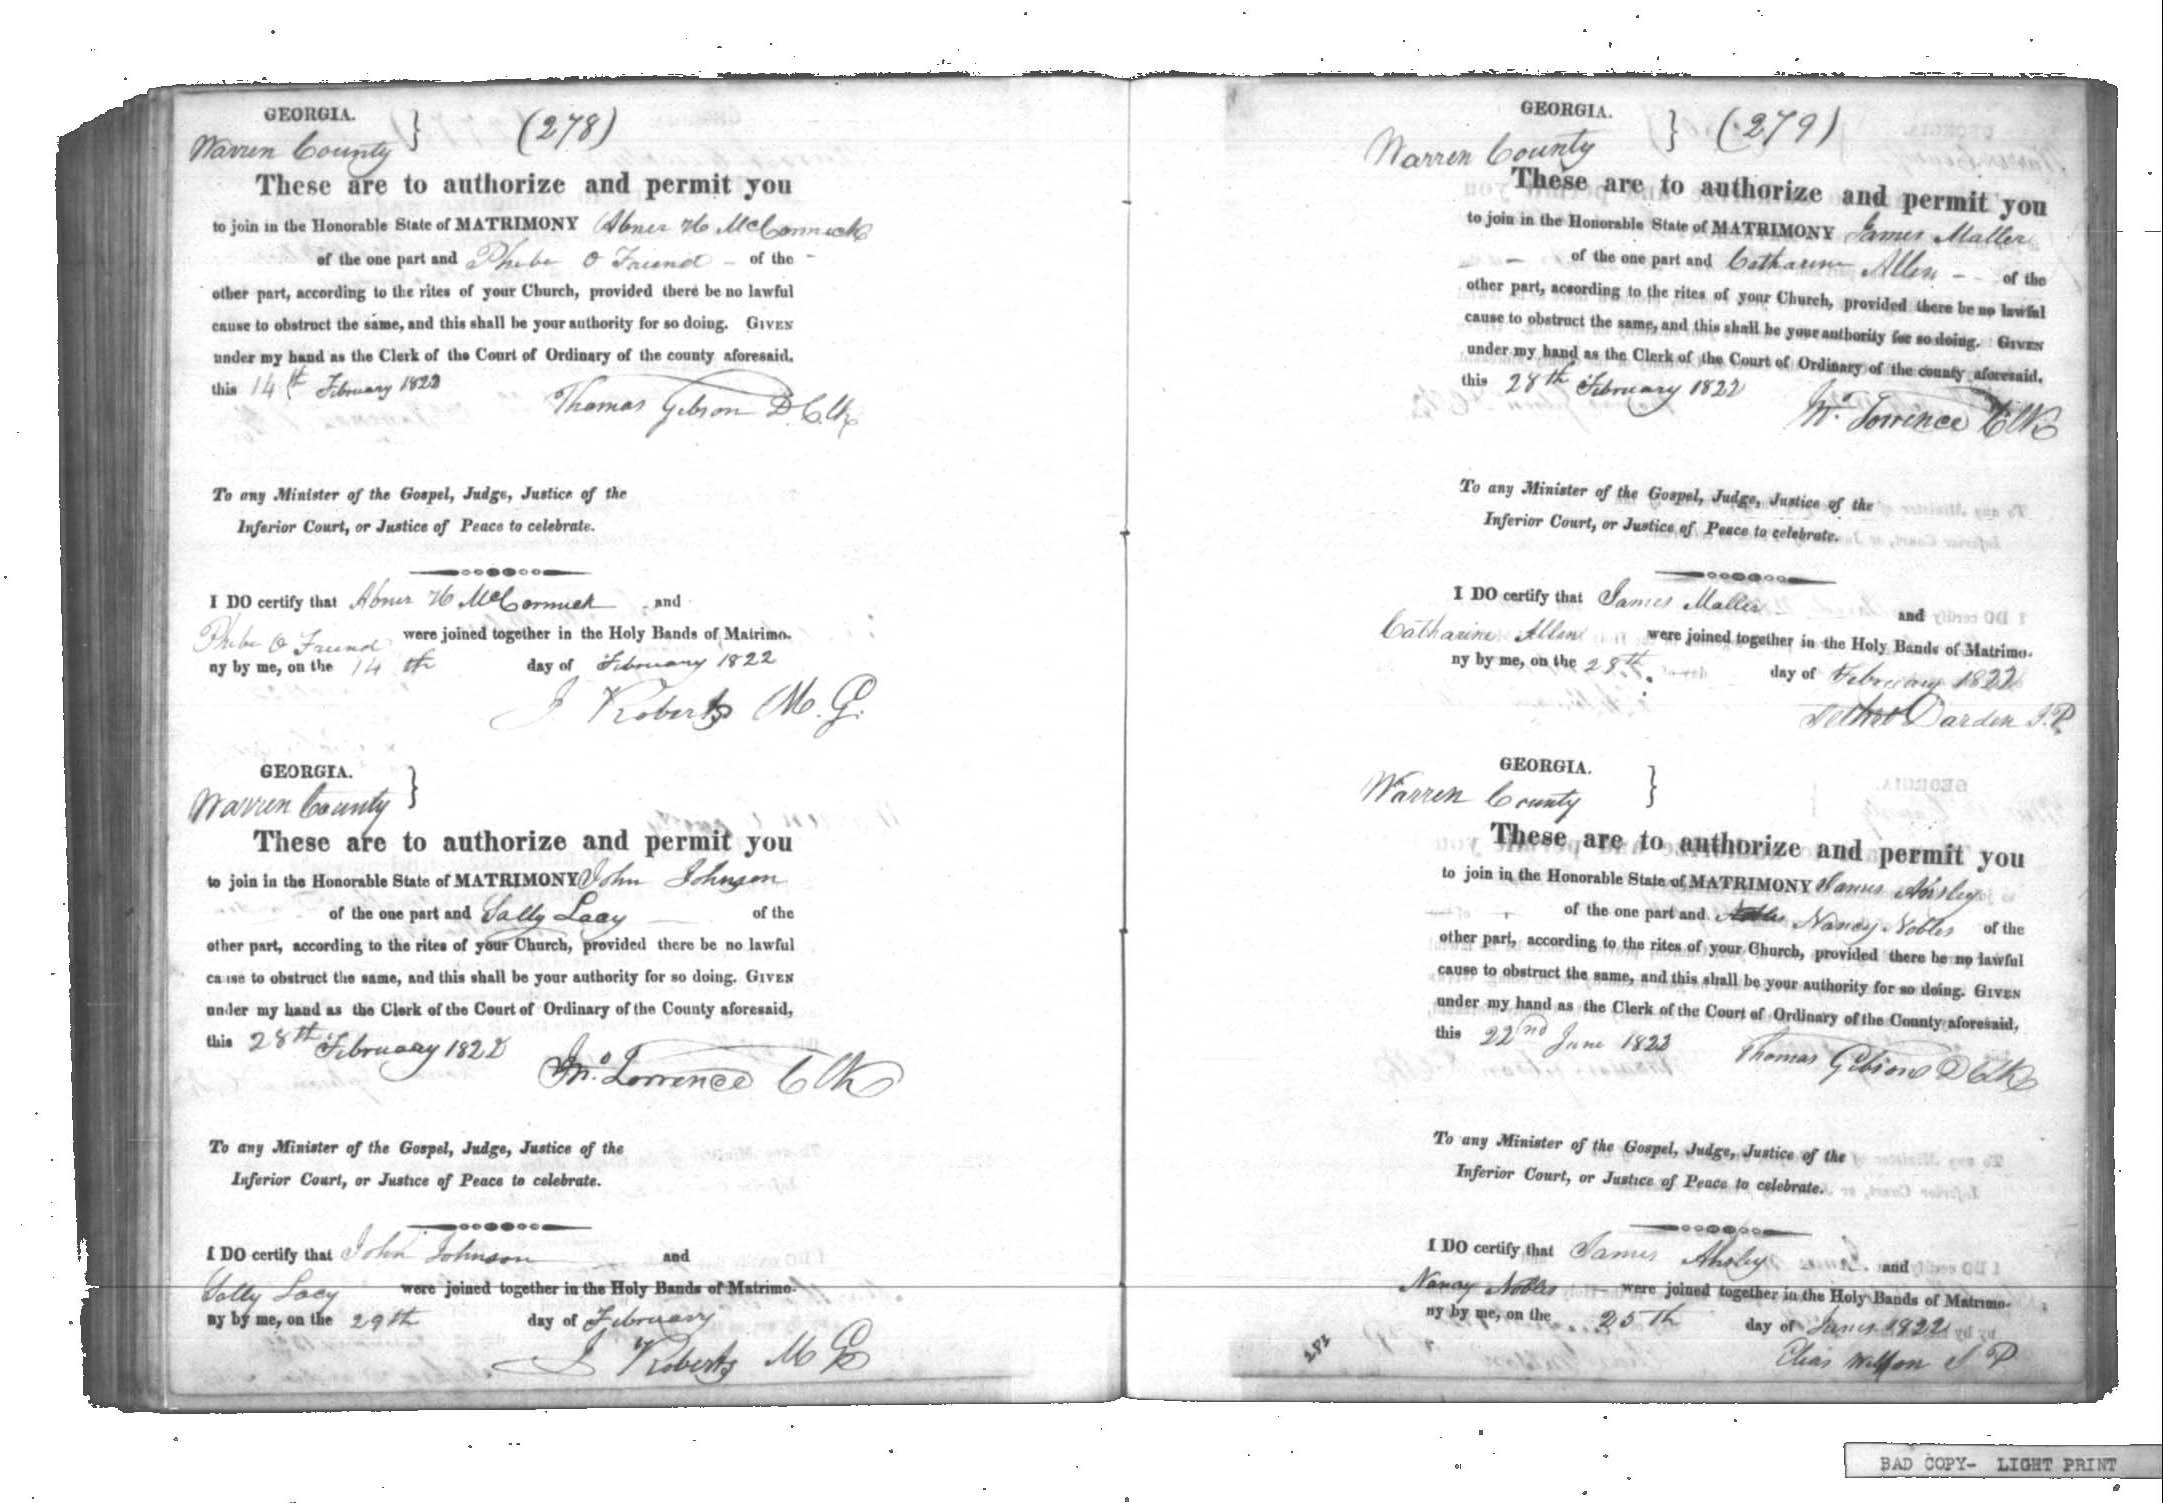 GEORGIA.
Warren County } (278)
These are to authorize and permit you
to join in the Honorable State of MATRIMONY Abner H McCormick
of the one part and Phebe O Friend - of the -
other part, according to the rites of your Church, provided there be no lawful
cause to obstruct the same, and this shall be your authority for so doing. GIVEN
under my hand as the Clerk of the Court of Ordinary of the county aforesaid,
this 14th February 1822
Thomas Gibson D. Clk
To any Minister of the Gospel, Judge, Justice of the
Inferior Court, or Justice of Peace to celebrate.
I DO certify that Abner H McCormick and
Phebe O Friend were joined together in the Holy Bands of Matrimo-
ny by me, on the 14th day of February 1822
J Roberts M. G.
GEORGIA.
Warren County }
These are to authorize and permit you
to join in the Honorable State of MATRIMONY John Johnson
of the one part and Sally Lacy of the
other part, according to the rites of your Church, provided there be no lawful
cause to obstruct the same, and this shall be your authority for so doing. GIVEN
under my hand as the Clerk of the Court of Ordinary of the County aforesaid,
this 28th February 1822
Jno. Torrence Clk
To any Minister of the Gospel, Judge, Justice of the
Inferior Court, or Justice of Peace to celebrate.
I DO certify that John Johnson and
Sally Lacy were joined together in the Holy Bands of Matrimo-
ny by me, on the 29th day of February
J Roberts M G
GEORGIA.
Warren County } (279)
These are to authorize and permit you
to join in the Honorable State of MATRIMONY James Maller
of the one part and Catharine Allen - - of the
other part, according to the rites of your Church, provided there be no lawful
cause to obstruct the same, and this shall be your authority for so doing. GIVEN
under my hand as the Clerk of the Court of Ordinary of the county aforesaid,
this 28th February 1822
Jno. Torrence Clk
To any Minister of the Gospel, Judge, Justice of the
Inferior Court, or Justice of Peace to celebrate.
I DO certify that James Maller and
Catharine Allen were joined together in the Holy Bands of Matrimo-
ny by me, on the 28th. day of February 1822
Darden J. P.
GEORGIA.
Warren County }
These are to authorize and permit you
to join in the Honorable State of MATRIMONY James Ansley
of the one part and Nancy Nobles of the
other part, according to the rites of your Church, provided there be no lawful
cause to obstruct the same, and this shall be your authority for so doing. GIVEN
under my hand as the Clerk of the Court of Ordinary of the County aforesaid,
this 22nd June 1822
Thomas Gibson D Clk
To any Minister of the Gospel, Judge, Justice of the
Inferior Court, or Justice of Peace to celebrate.
I DO certify that James Ansley and
Nancy Nobles were joined together in the Holy Bands of Matrimo-
ny by me, on the 25th day of June 1822
Elias Wilson J P
282
BAD COPY- LIGHT PRINT